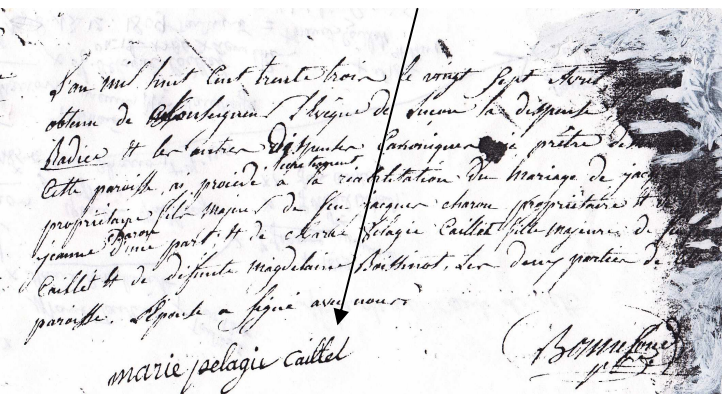 L'an mil huit cent trente trois le vingt sept Avril
obtenu de Monseigneur l'Evêque de Luçon la dispense
Radice et les autres Dispenses Canoniques je prêtre de
Cette paroisse, ai procédé secrètement à la réabilitation du mariage de jacques
propriétaire fils majeur de feu jacques charon propriétaire et de
jeanne d'une part, et de Marie Pélagie Caillet fille majeure de feu
Caillet et de défunte magdelaine Boissinot. Les deux parties de
paroisse. L'Epouse a signé avec nous
marie pelagie Caillet